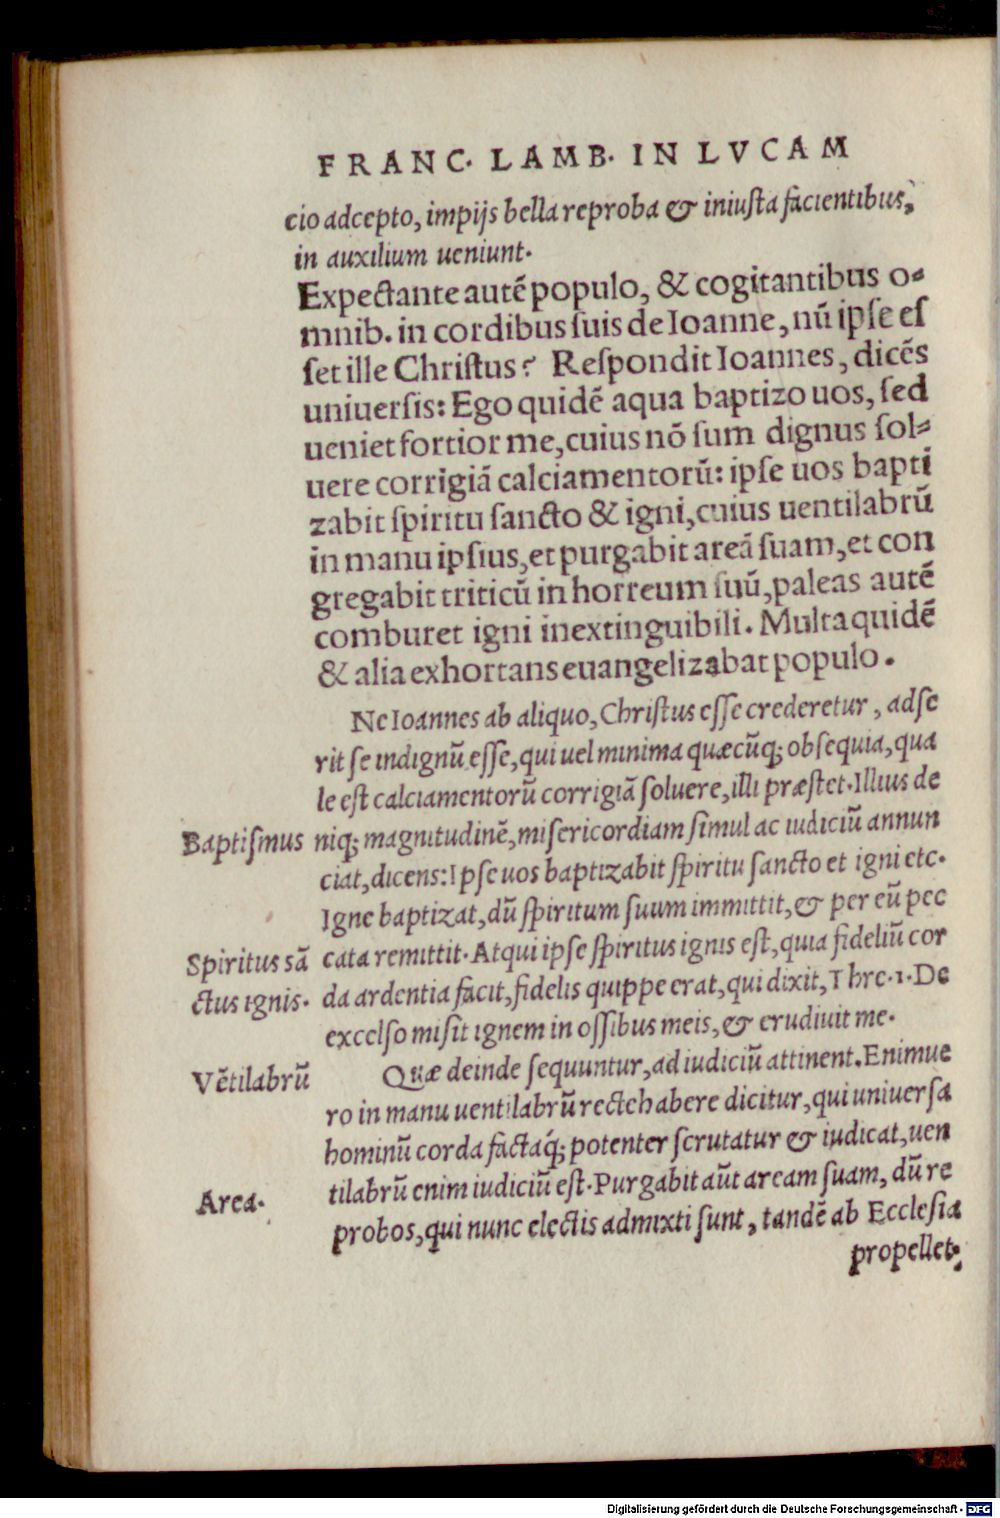 FRANC. LAMB. IN LVCAM
cio adcepto, impijs bella reproba & iniusta facientibus,
in auxilium ueniunt.
Expectante autē populo, & cogitantibus o-
mnib. in cordibus suis de Ioanne, nū ipse es
set ille Christus? Respondit Ioannes, dicēs
uniuersis: Ego quidē aqua baptizo uos, sed
ueniet fortior me, cuius nō sum dignus sol-
uere corrigiā calciamentorū: ipse uos bapti
zabit spiritu sancto & igni, cuius uentilabrū
in manu ipsius, et purgabit areā suam, et con
gregabit triticū in horreum suū, paleas autē
comburet igni inextinguibili. Multa quidē
& alia exhortans euangelizabat populo.
Ne Ioannes ab aliquo, Christus esse crederetur, adse
rit se indignū esse, qui uel minima quæcūq; obsequia, qua
le est calciamentorū corrigiā soluere, illi præstet. Illius de
Baptismus niq; magnitudinē, misericordiam simul ac iudiciū annun
ciat, dicens: Ipse uos baptizabit spiritu sancto et igni etc.
Igne baptizat, dū spiritum suum immittit, & per eū pec
Spiritus sā cata remittit. Atqui ipse spiritus ignis est, quia fideliū cor
ctus ignis. da ardentia facit, fidelis quippe erat, qui dixit, Thre. 1. De
excelso misit ignem in ossibus meis, & erudiuit me.
Vētilabrū Quæ deinde sequuntur, ad iudiciū attinent. Enimue
ro in manu uentilabrū recte habere dicitur, qui uniuersa
hominū corda factaq́; potenter scrutatur & iudicat, uen
Area. tilabrū enim iudiciū est. Purgabit aūt aream suam, dū re
probos, qui nunc electis admixti sunt, tandē ab Ecclesia
propellet.
Digitalisierung gefördert durch die Deutsche Forschungsgemeinschaft - DFG